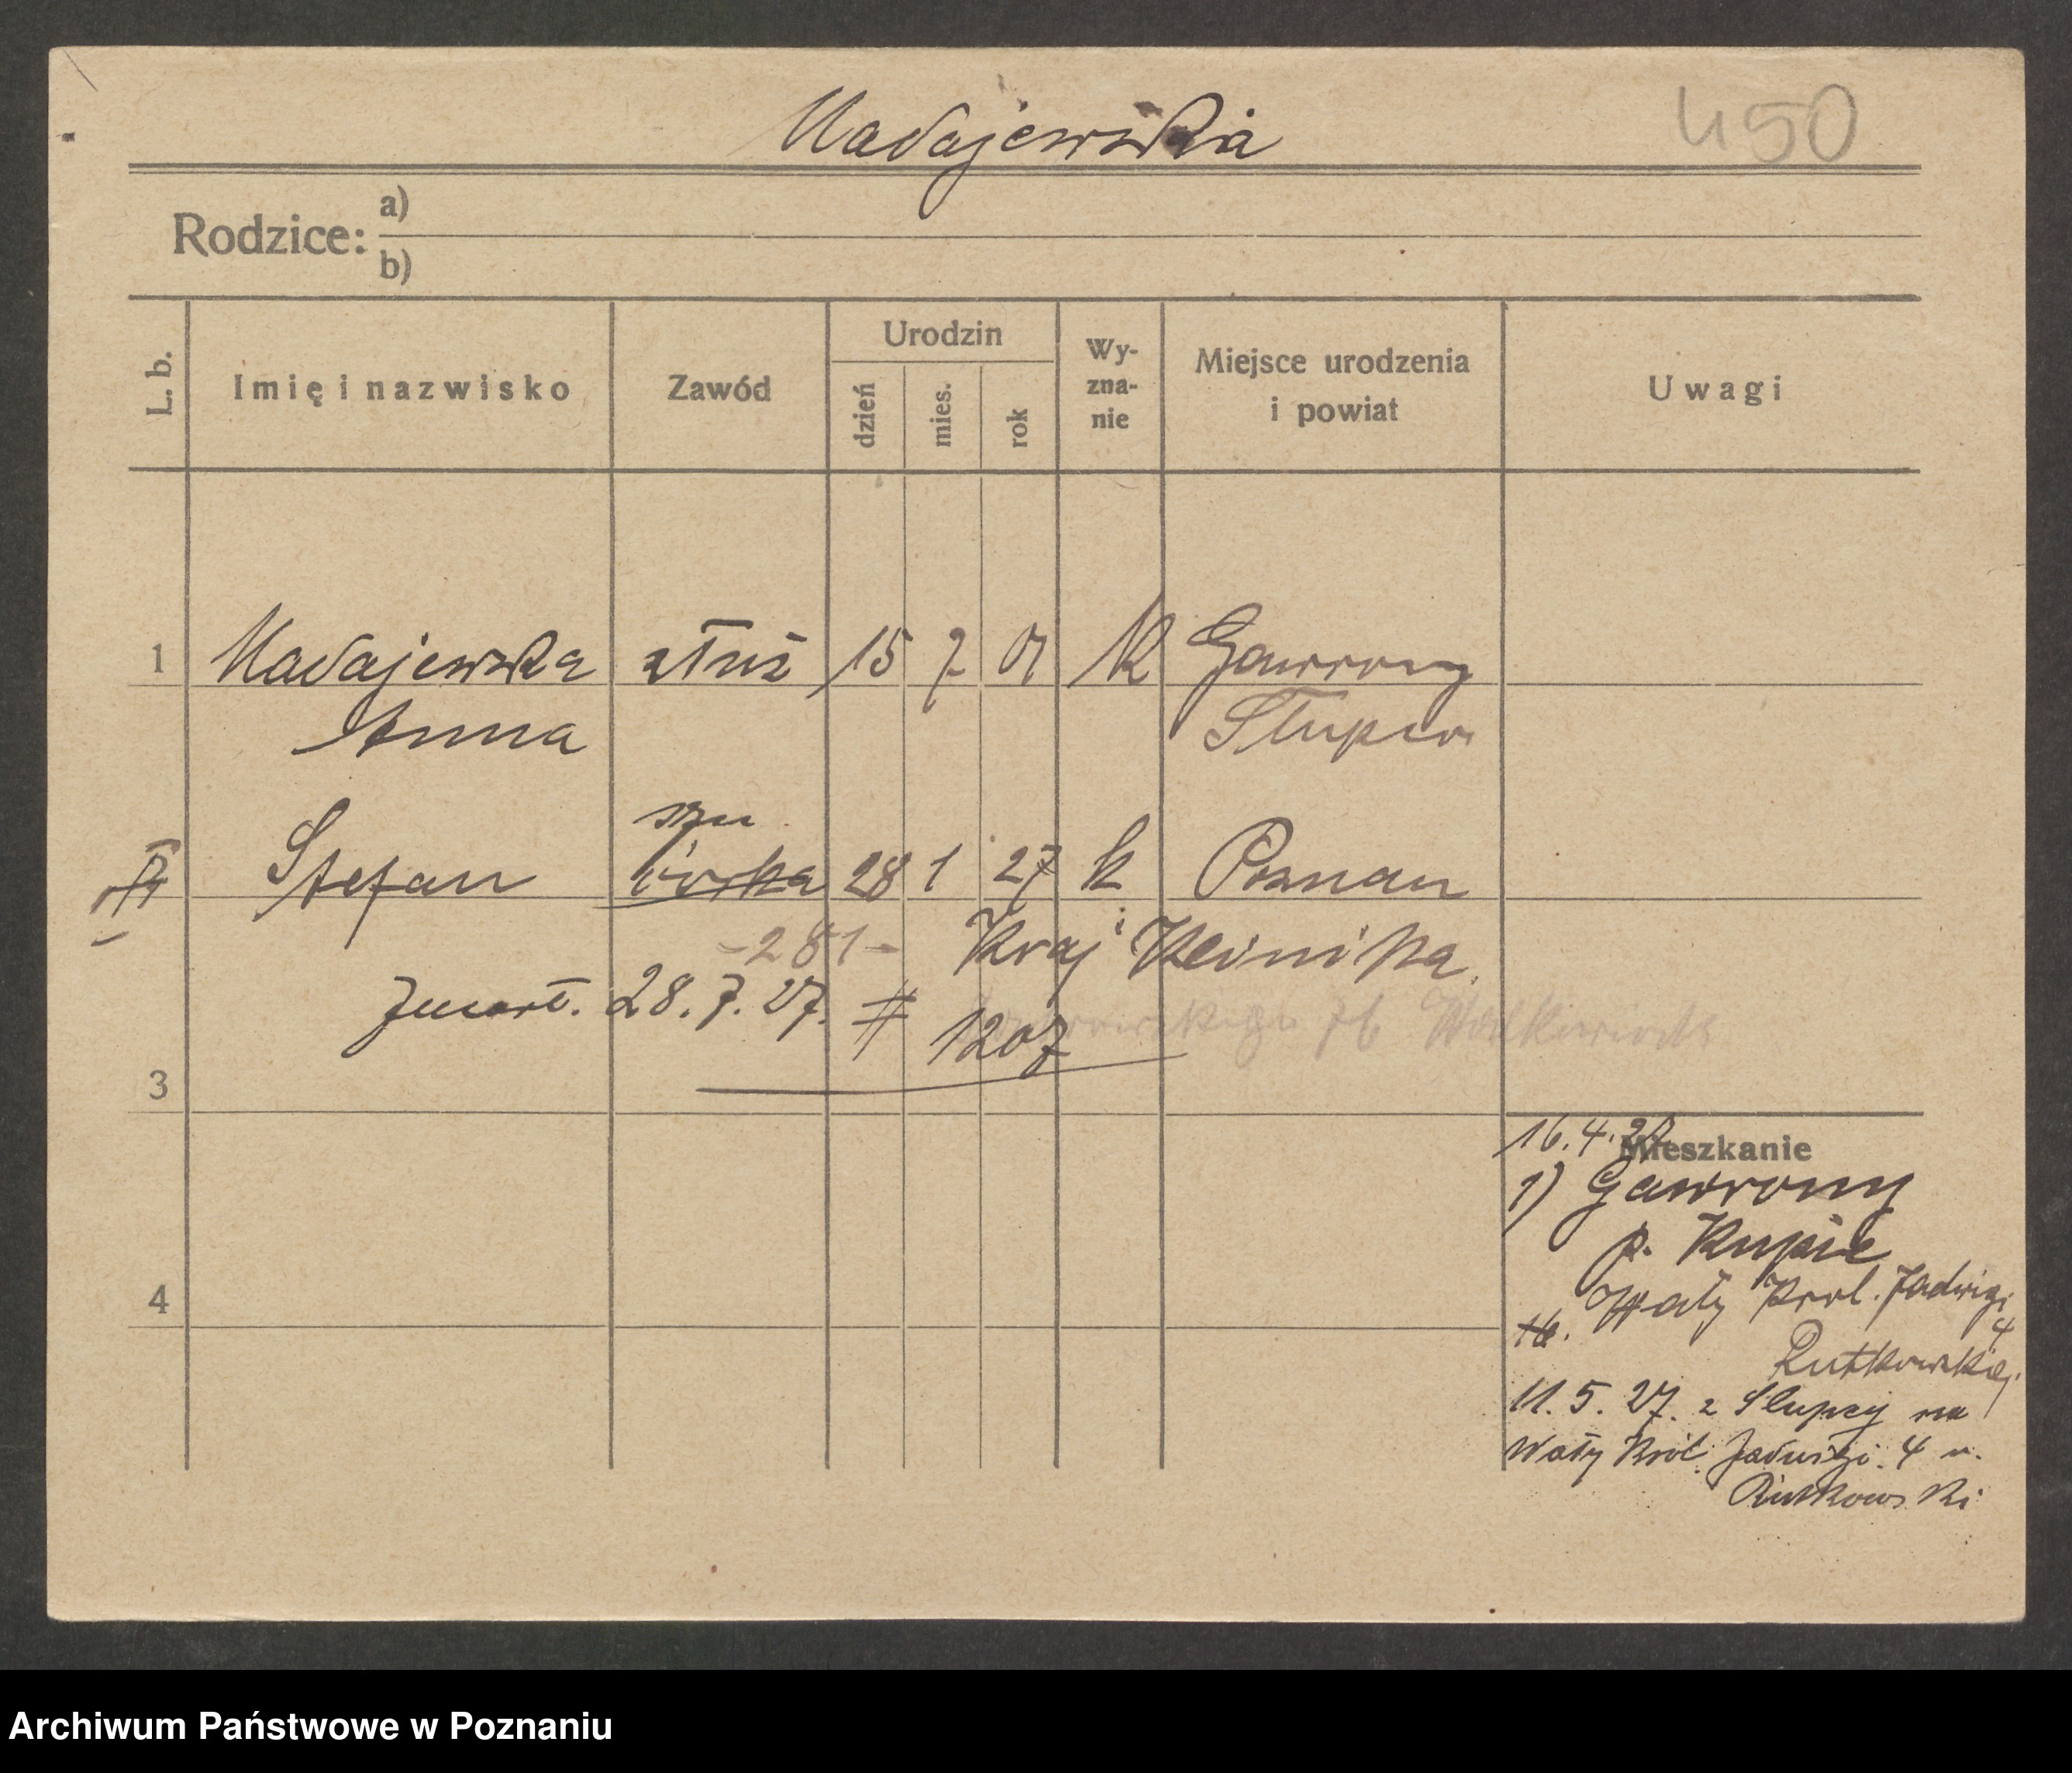 Madajewska
450
Rodzice: a)
b)
L. b.
Imię i nazwisko
Zawód
Urodzin
dzień
mies.
rok
Wy-
zna-
nie
Miejsce urodzenia
i powiat
Uwagi
1 Madajewska służ 15 7 01 K Gawrony
Anna Słupca
syn
Stefan córka 28 1 27 k Poznan
-281- Kraj Klinika
Zmarł. 28. 7. 27. # 1207
3
16.4.27
Mieszkanie
1) Gawrony
p. Kupie
4
16. Wały Krol. Jadwigi
4
Rutkowskiej
11. 5. 27. z Slupcy na
Wały Król. Jadwigi. 4 u.
Rutkowski
Archiwum Państwowe w Poznaniu